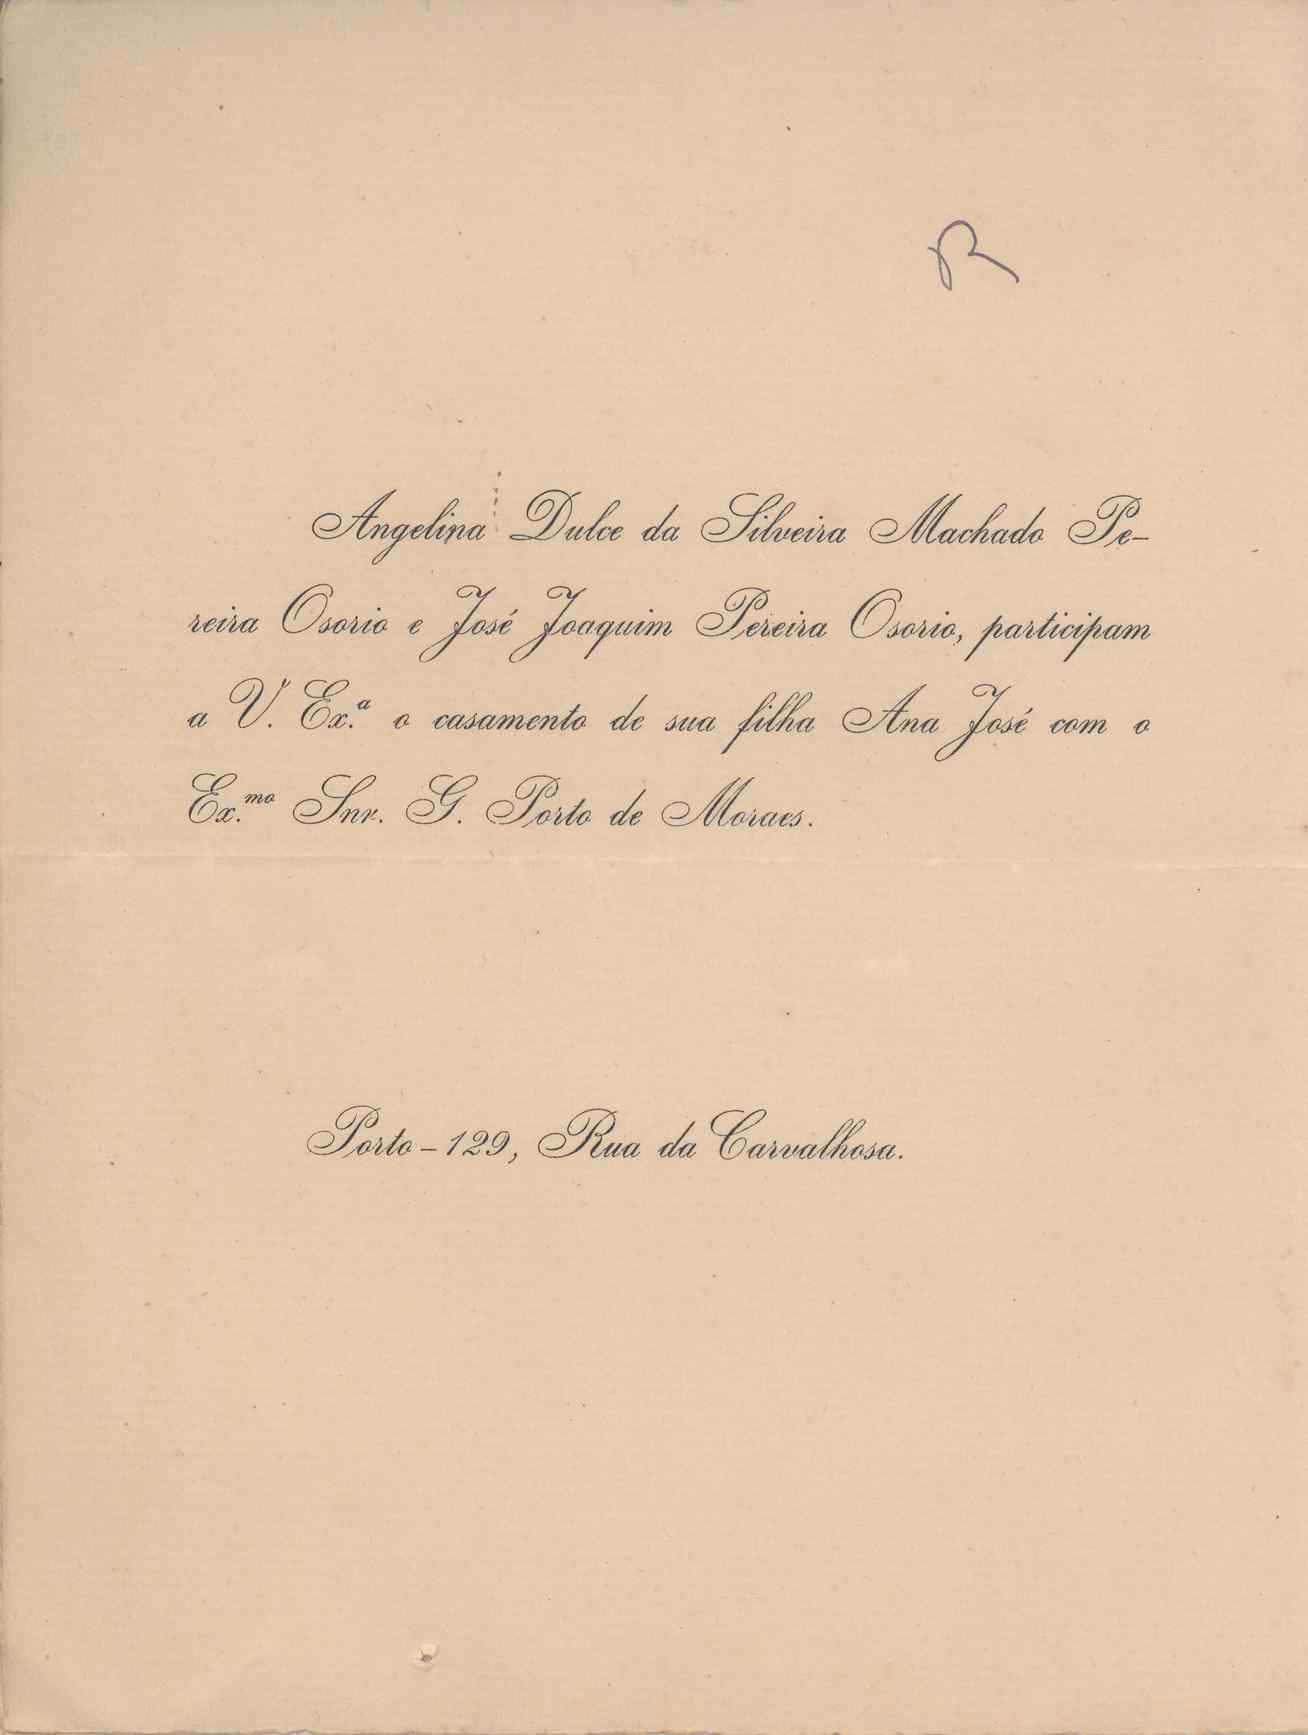 R
Angelina Dulce da Silveira Machado Pe-
reira Osorio e José Joaquim Pereira Osorio, participam
a V. Ex.ª o casamento de sua filha Ana José com o
Ex.mo Snr. G. Porto de Moraes.
Porto – 129, Rua da Carvalhosa.